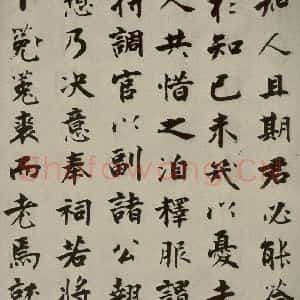 知人且期君必能
於知己未幾以憂去
人共惜之洎釋服謂
調官以副諸公翹
乃决意奉祠若將
菟裘而老焉
shufawang.cn